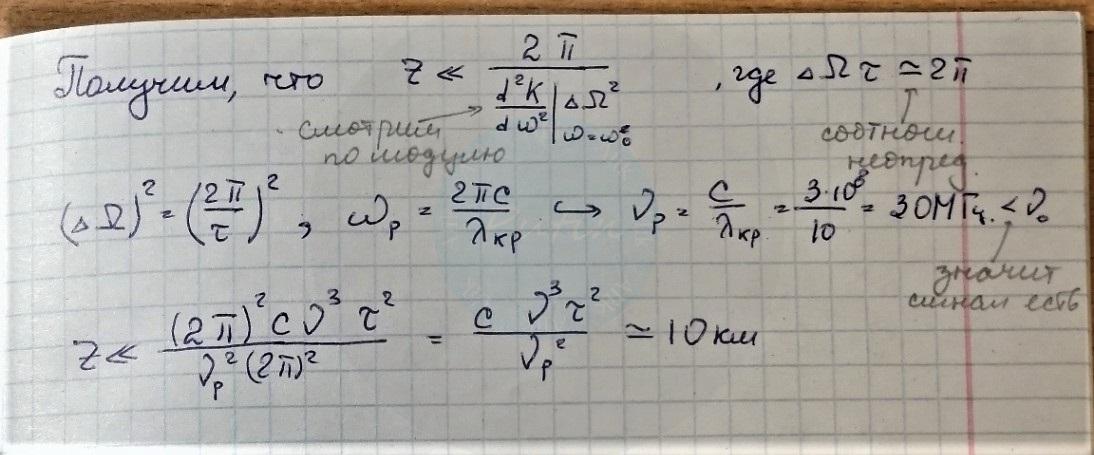 Получим, что z ≪ 2π / (d²K/dω² |ω=ω₀ ΔΩ²) , где ΔΩτ ≃ 2π
смотрим по модулю
соотнош. неопред.
(ΔΩ)² = (2π/τ)² ; ω_p = 2πc/λкр ↪ ν_p = c/λкр = 3·10⁸/10 = 30 МГц. < ν₀
значит сигнал есть
z ≪ (2π)² c ν³ τ² / ν_p² (2π)² = c ν³ τ² / ν_p² ≃ 10 км